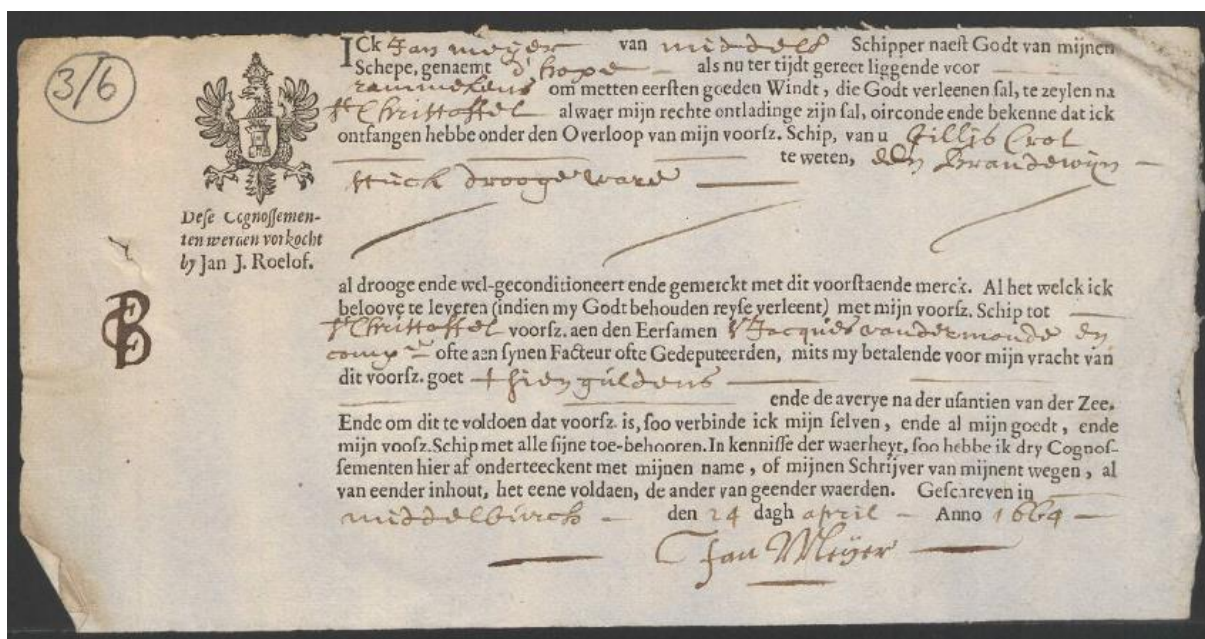 3/6
ICk Jan meijer van middelb Schipper naest Godt van mijnen
Schepe, genaemt d'hope als nu ter tijdt gereet liggende voor
rammekens om metten eersten goeden Windt, die Godt verleenen sal, te zeylen na
St Christoffel alwaer mijn rechte ontladinge zijn sal, oirconde ende bekenne dat ick
ontfangen hebbe onder den Overloop van mijn voorsz. Schip, van u Gillis Crol
te weten, Brandewijn
stuck drooge ware
Dese Cognossemen-
ten werden vorkocht
by Jan J. Roelof.
al drooge ende wel-geconditioneert ende gemerckt met dit voorstaende merck. Al het welck ick
beloove te leveren (indien my Godt behouden reyse verleent) met mijn voorsz. Schip tot
St Christoffel voorsz. aen den Eersamen Sr Jacques vandermonde en
comp ofte aen synen Facteur ofte Gedeputeerden, mits my betalende voor mijn vracht van
dit voorsz. goet thien guldens
ende de averye na der usantien van der Zee.
Ende om dit te voldoen dat voorsz. is, soo verbinde ick mijn selven, ende al mijn goedt, ende
mijn voosz. Schip met alle sijne toe-behooren. In kennisse der waerheyt, soo hebbe ik dry Cognos-
sementen hier af onderteeckent met mijnen name, of mijnen Schrijver van mijnent wegen, al
van eender inhout, het eene voldaen, de ander van geender waerden. Gescareven in
middelburch den 24 dagh april Anno 1664
Jan Meijer